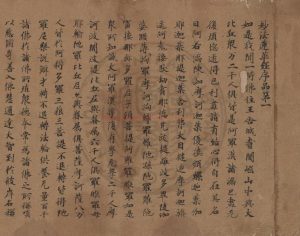 妙法蓮華經序品第一
如是我聞一時佛住王舍城耆闍崛山中與大
比丘衆万二千人俱皆是阿羅漢諸漏已盡无
復煩惱逮得己利盡諸有結心得自在其名
曰阿若憍陳如摩訶迦葉優樓頻螺迦葉伽
耶迦葉那提迦葉舍利弗大目揵連摩訶迦
旃延阿㝹樓馱劫賓那憍梵波提離婆多畢陵
伽婆蹉薄拘羅摩訶拘絺羅難陀孫陀羅難陀
富樓那彌多羅尼子須菩提阿難羅睺羅如是
衆所知識大阿羅漢等復有學无學二千人摩
訶波闍波提比丘尼與眷屬六千人俱羅睺羅母
耶輸陀羅比丘尼亦與眷屬俱菩薩摩訶薩八万
人皆於阿耨多羅三藐三菩提不退轉皆得陀
羅尼樂說辯才轉不退轉法輪供養无量百千
諸佛於諸佛所殖衆德本常為諸佛之所稱歎
以慈修身善入佛慧通達大智到於彼岸名稱